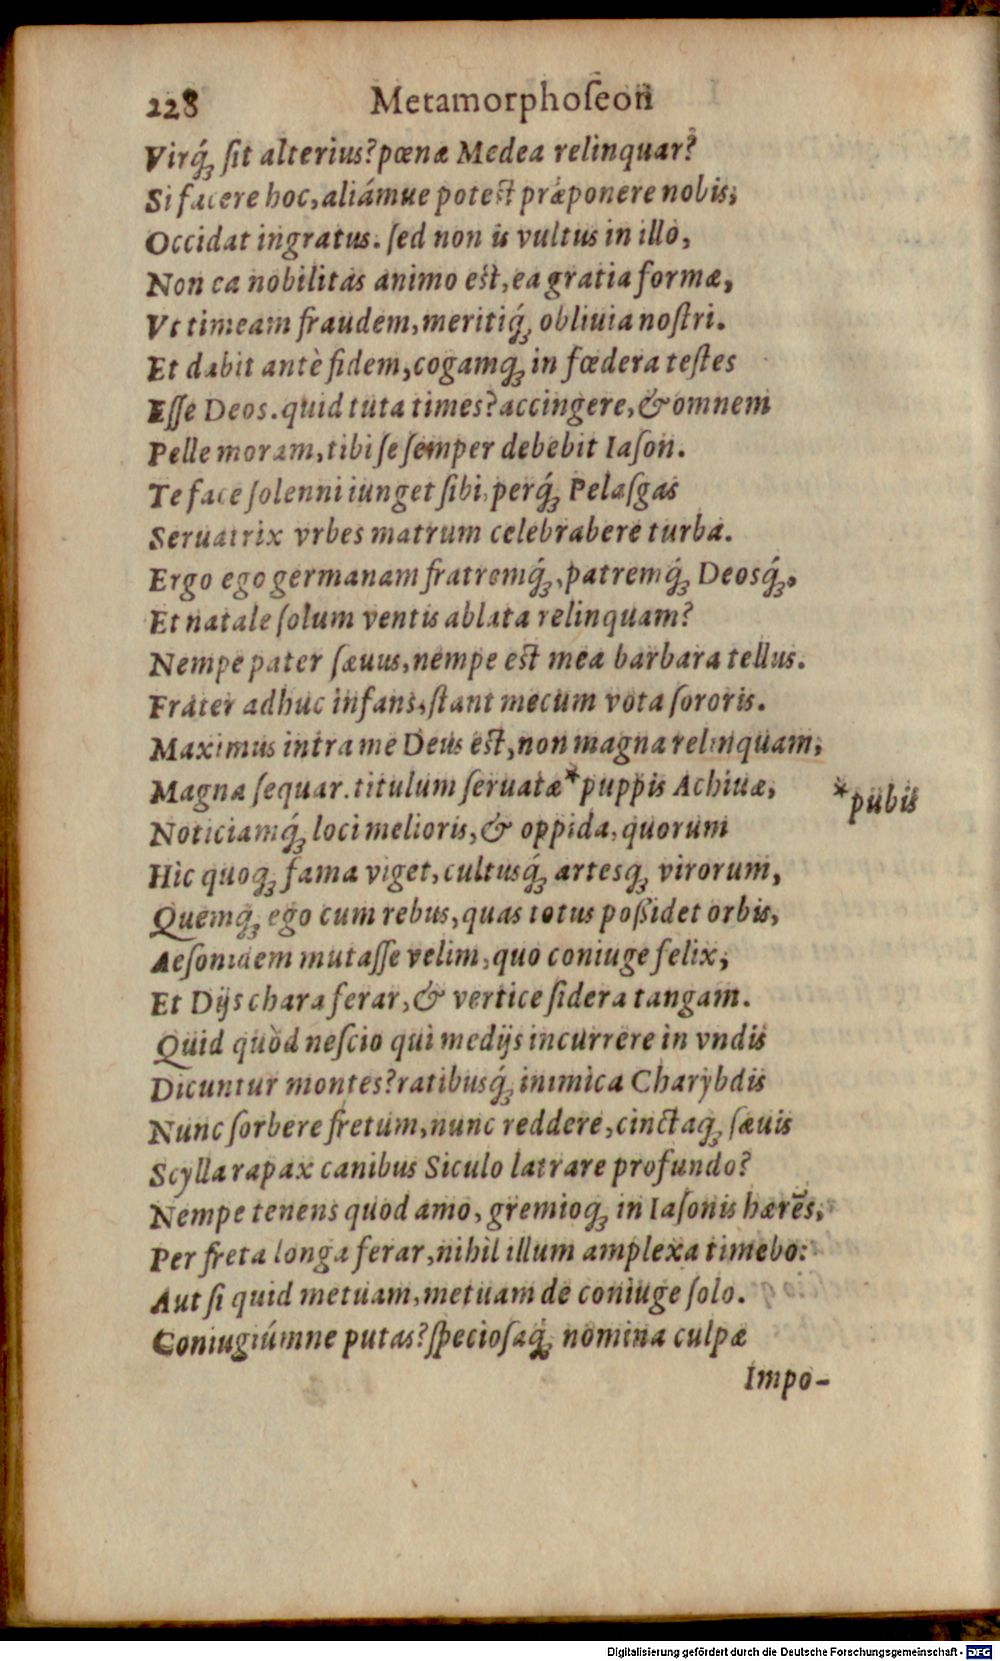 228 Metamorphoſeon
Virq́ꝫ ſit alterius? pœnæ Medea relinquar?
Si facere hoc, aliámue poteſt præponere nobis;
Occidat ingratus. ſed non is vultus in illo,
Non ea nobilitas animo eſt, ea gratia formæ,
Vt timeam fraudem, meritiq́ꝫ obliuia noſtri.
Et dabit antè fidem, cogamqꝫ in fœdera teſtes
Eſſe Deos. quid tuta times? accingere, & omnem
Pelle moram, tibi ſe ſemper debebit Iaſon.
Te face ſolenni iunget ſibi, perq́ꝫ Pelaſgas
Seruatrix vrbes matrum celebrabere turba.
Ergo ego germanam fratremq́ꝫ, patremq́ꝫ Deosq́ꝫ,
Et natale ſolum ventis ablata relinquam?
Nempe pater ſæuus, nempe eſt mea barbara tellus.
Frater adhuc infans, ſtant mecum vota ſororis.
Maximus intra me Deus eſt, non magna relinquam;
Magna ſequar. titulum ſeruatæ *puppis Achiuæ,
*pubis
Noticiamq́ꝫ loci melioris, & oppida, quorum
Hîc quoqꝫ fama viget, cultusq́ꝫ artesqꝫ virorum,
Quemqꝫ ego cum rebus, quas totus poßidet orbis,
Aeſonidem mutaſſe velim, quo coniuge felix;
Et Dijs chara ferar, & vertice ſidera tangam.
Quid quòd neſcio qui medijs incurrere in vndis
Dicuntur montes? ratibusq́ꝫ inimica Charybdis
Nunc ſorbere fretum, nunc reddere, cinctaqꝫ ſæuis
Scylla rapax canibus Siculo latrare profundo?
Nempe tenens quod amo, gremioqꝫ in Iaſonis hærēs,
Per freta longa ferar, nihil illum amplexa timebo:
Aut ſi quid metuam, metuam de coniuge ſolo.
Coniugiúmne putas? ſpecioſaq́ꝫ nomina culpæ
Impo-
Digitalisierung gefördert durch die Deutsche Forschungsgemeinschaft - DFG